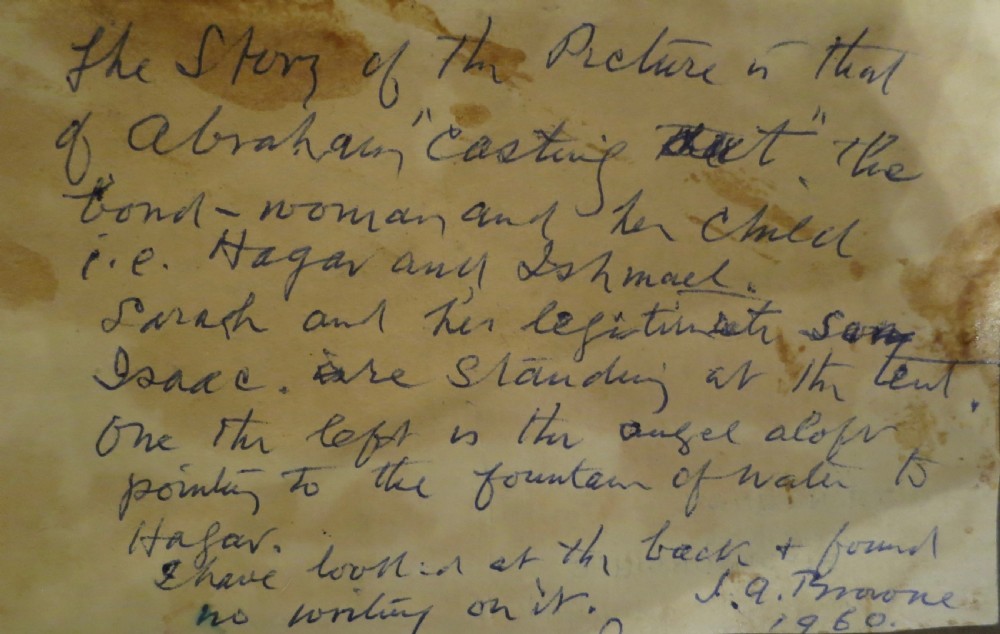 The Story of the Picture is that
of Abraham "casting out" the
bond-woman and her child
i.e. Hagar and Ishmael.
Sarah and her legitimate son
Isaac. are standing at the tent.
One the left is the angel aloft
pointing to the fountain of water to
Hagar.
I have looked at the back & found
no writing on it. J.A. Browne
1960.